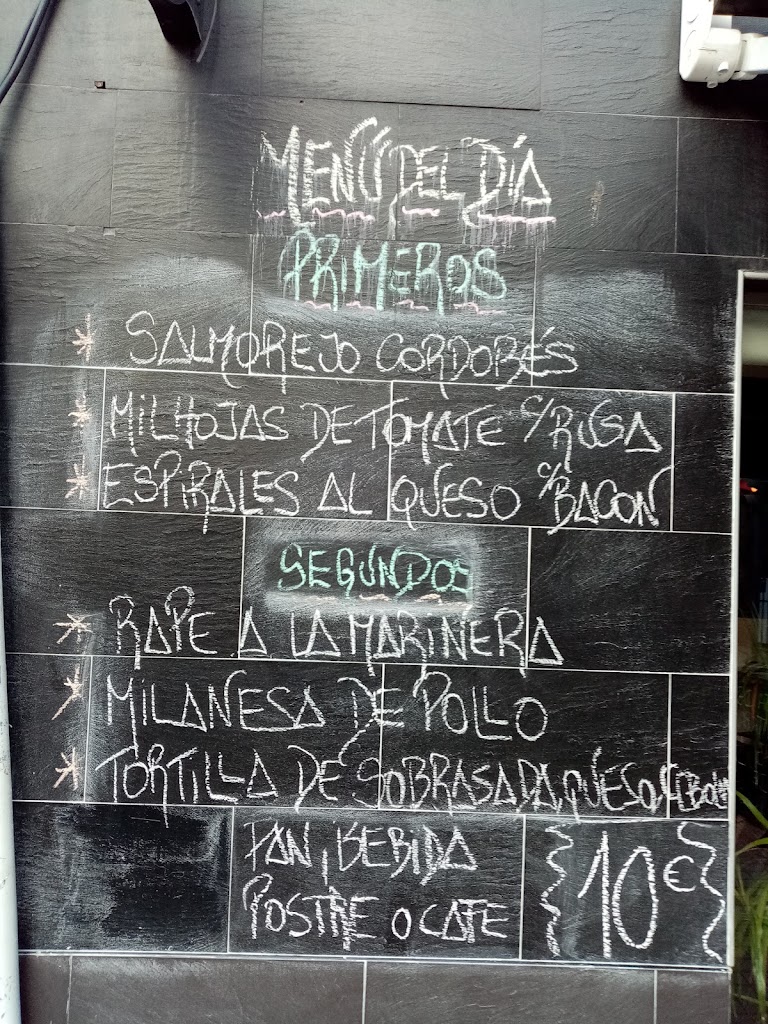 MENÚ DEL DÍA
PRIMEROS
* SALMOREJO CORDOBÉS
* MILHOJAS DE TOMATE C/RUGA
* ESPIRALES AL QUESO C/BACON
SEGUNDOS
* RAPE A LA MARINERA
* MILANESA DE POLLO
* TORTILLA DE SOBRASADA, QUESO,
PAN, BEBIDA
POSTRE O CAFE
10€